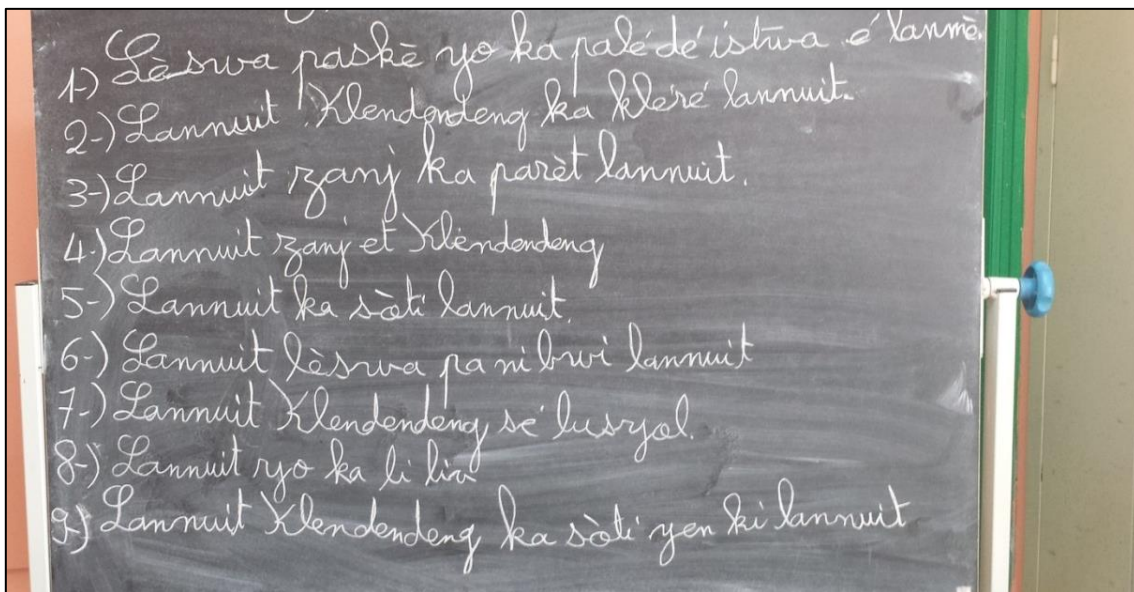 1-) Lèswa paskè yo ka palé dé istwa é lanmè.
2-) Lannuit Klendendeng ka kléré lannuit.
3-) Lannuit zanj ka parèt lannuit.
4-) Lannuit zanj et Klèndendeng
5-) Lannuit ka sòti lannuit.
6-) Lannuit lèswa pa ni brui lannuit
7-) Lannuit Klendendeng sé lusyol.
8-) Lannuit yo ka li liv
9-) Lannuit Klendendeng ka sòti yen ki lannuit